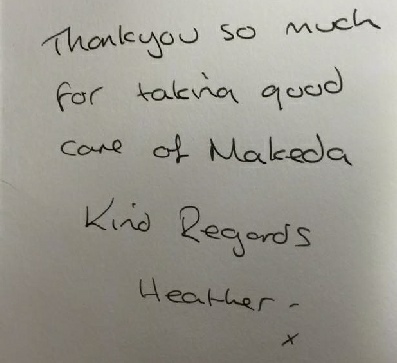 Thankyou so much
for taking good
care of Makeda
Kind Regards
Heather -
x